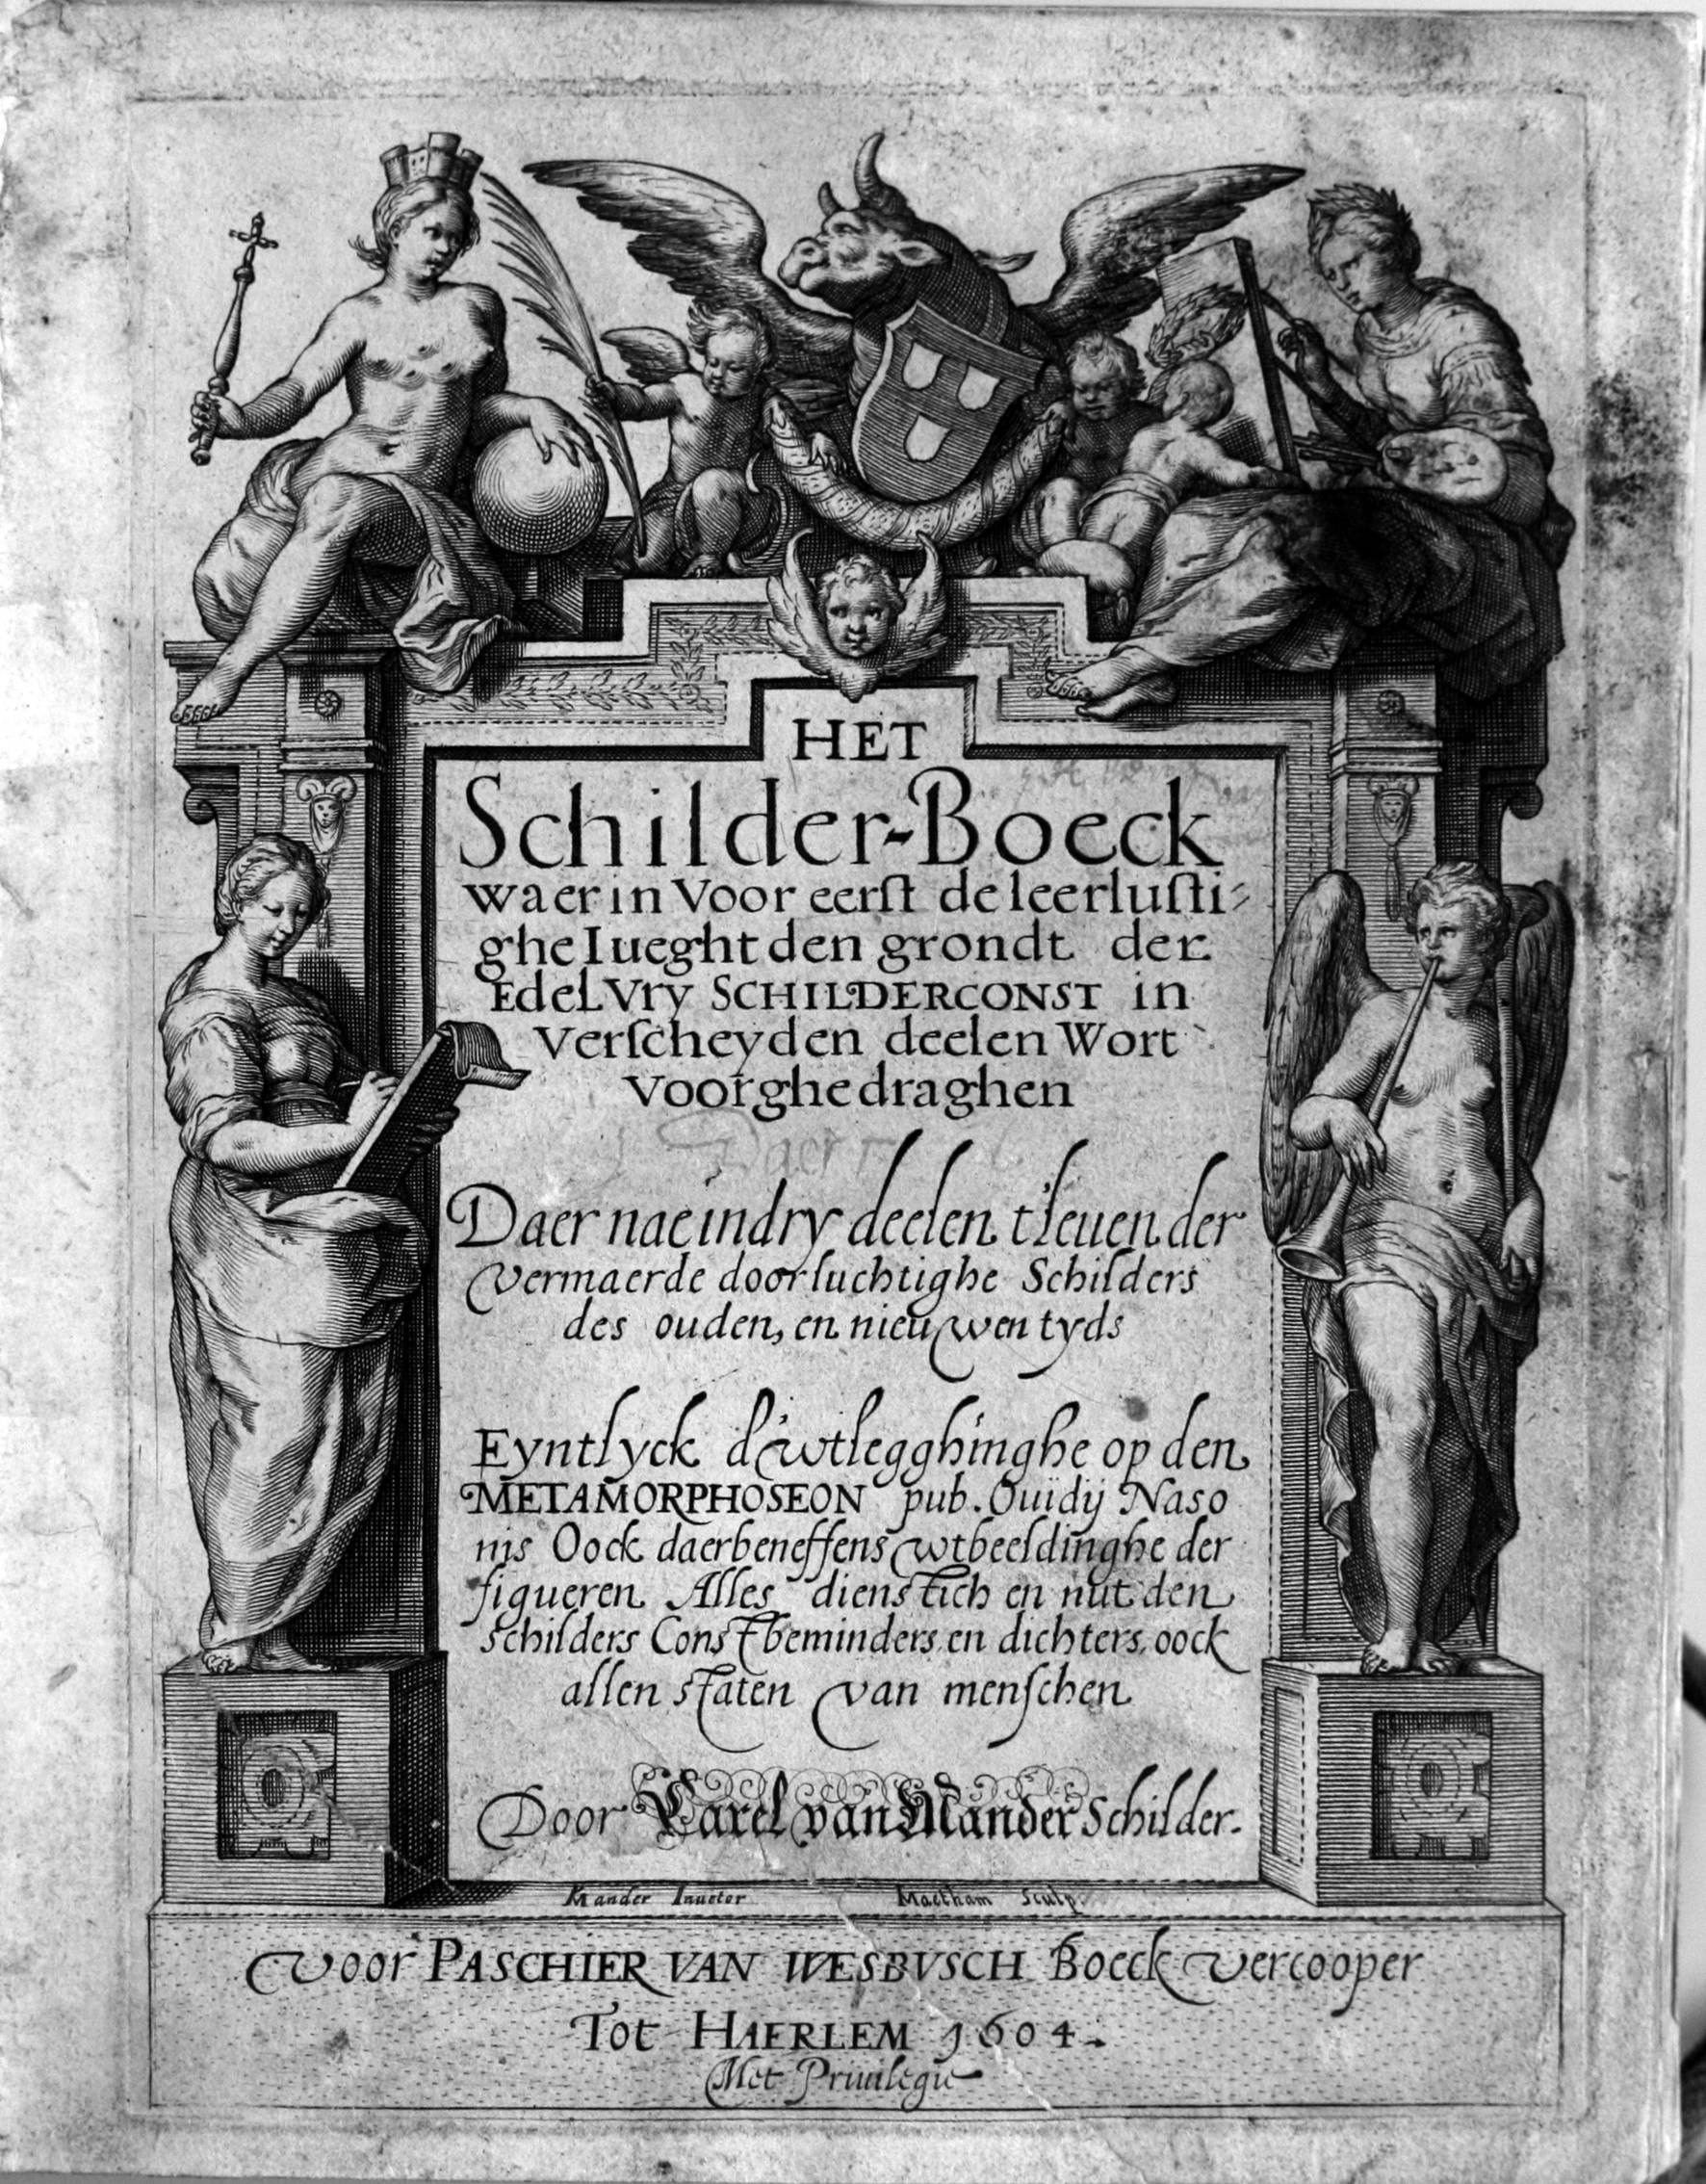 HET
Schilder-Boeck
waer in Voor eerſt de leerluſti-
ghe Iueght den grondt der
Edel Vry SCHILDERCONST in
Verſcheyden deelen Wort
Voorghedraghen
Daer nae in dry deelen t'leuen der
vermaerde doorluchtighe Schilders
des ouden, en nieuwen tyds
Eyntlyck d'wtlegghinghe op den
METAMORPHOSEON pub. Ouidij Naso
nis Oock daerbeneffens wtbeeldinghe der
figueren Alles dienstich en nut den
schilders Constbeminders en dichters, oock
allen staten van menſchen
Door Carel van Mander Schilder.
KMander Inuetor Maetham Sculp.
voor PASCHIER VAN WESBVSCH Boeck vercooper
Tot HAERLEM 1604.
Met Priuilegie